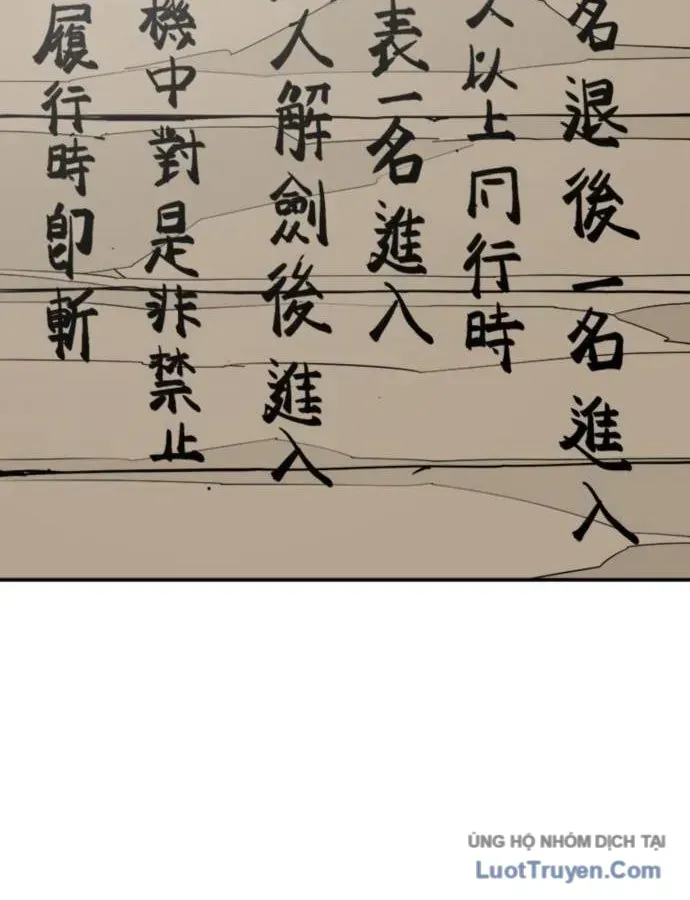 名退後一名進入
人以上同行時
表一名進入
人解劍後進入
機中對是非禁止
履行時卽斬
ỦNG HỘ NHÓM DỊCH TẠI
LuotTruyen.Com